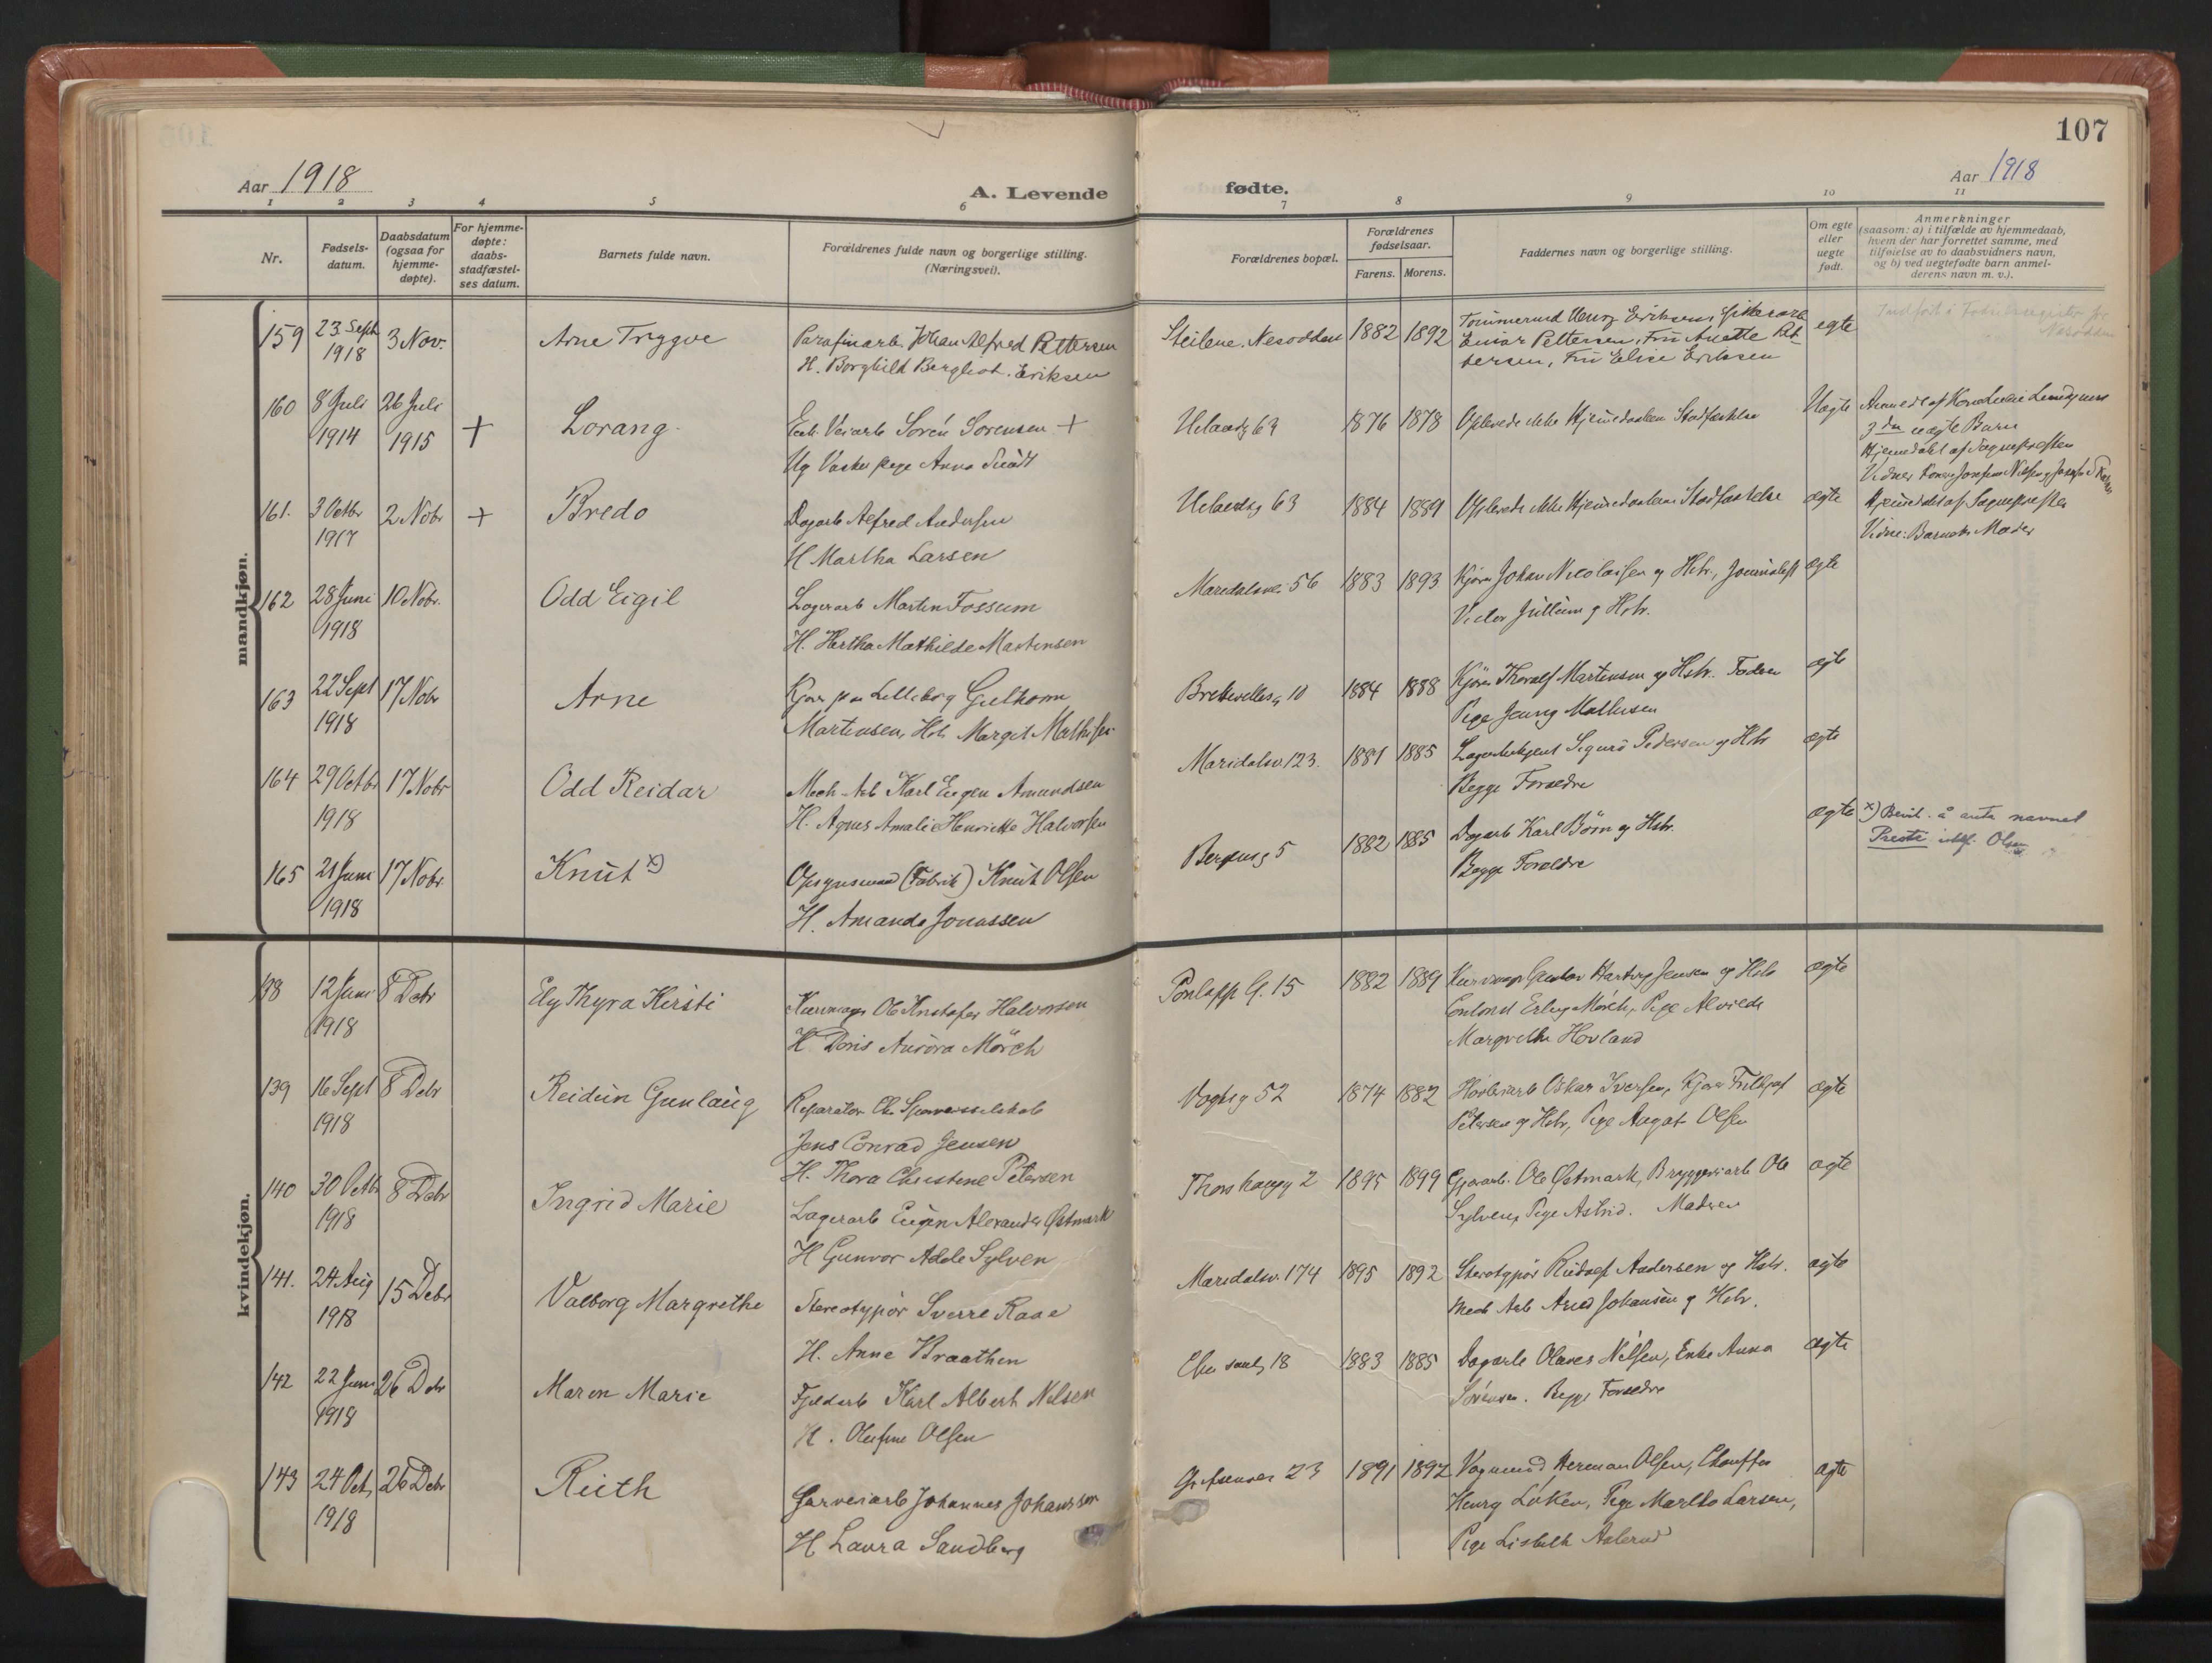 107
Aar 1918
A. Levende
fødte.
Aar 1918
1 2 3 4 5 6 7 8 9 10 11
Nr.
Fødsels-
datum.
Daabsdatum
(ogsaa for
hjemme-
døpte).
For hjemme-
døpte:
daabs-
stadfæstel-
ses datum.
Barnets fulde navn.
Forældrenes fulde navn og borgerlige stilling.
(Næringsvei).
Forældrenes bopæl.
Forældrenes
fødselsaar.
Farens. Morens.
Faddernes navn og borgerlige stilling.
Om egte
eller
uegte
født.
Anmerkninger
(saasom: a) i tilfælde av hjemmedaab,
hvem der har forrettet samme, med
tilføielse av to daabsvidners navn,
og b) ved uegtefødte barn anmel-
derens navn m. v.).
mandkjøn.
159 23 Sept 1918 3 Nov. Arne Tryggve
Parafinarb. Johan Alfred Pettersen
H. Borghild Bergliot Eriksen
Steilene, Nesodden 1882 1892
Tømmermd Henry Eriksen,
Einar Pettersen, Fru Anette Pet-
tersen, Fru Elise Eriksen
egte
160 8 Juli 1914 26 Juli 1915 + Lorang
Søren Sørensen +
Ug Anna
63 1876 1878
Oplevede ikke Hjemmedaabens Stadfæstelse
Uegte
3die uegte Barn
Hjemmedøbt af Sognepresten
161. 3 Octbr 1917 2 Nobr + Bredo
Dagarb Alfred Andersen
H Martha Larsen
63 1884 1889
Oplevede ikke Hjemmedaabens Stadfæstelse
ægte
Hjemmedøbt af Sognepresten
Vidne: Barnets Moder
162 28 Juni 1918 10 Nobr. Odd Eigil
Lagerarb Martin Fossum
H. Hertha Mathilde Martensen
Maridalsvei 56 1883 1893
Kjører Johan Nicolaisen og Hstr., Journalist
Victor Jullum og Hstr.
ægte
163 22 Sept 1918 17 Nobr Arne
Kjører paa Lilleborg
Martensen, Hstr Margit Mathisen
10 1884 1888
Kjører Thoralf Martensen og Hstr. Faderen
Pige Jenny Mathisen
ægte
164 29 Octbr 1918 17 Nobr Odd Reidar
Mech. Arb Karl Eugen Amundsen
H. Agnes Amalie Henriette Halvorsen
Maridalsv. 123. 1881 1885
Sigurd Pedersen og Hstr
Begge Forældre
ægte
165 21 Juni 1918 17 Nobr. Knut x)
Opsynsmand (Fabrik) Knut Olsen
H. Amanda Jonassen
Bergensg 5 1882 1885
Dagarb Karl Börn og Hstr.
Begge Forældre
ægte
x) Bevil. å anta navnet
Preste istf. Olsen
kvindekjøn.
138 12 Juni 1918 8 Debr Ely Thyra Kirsti
Ole Kristofer Halvorsen
H. Doris Aurora Mörch
15 1882 1889
Gustav Hartvig Jensen og Hstr
Erling Mörch, Pige Alvilde
Margrethe Hovland
ægte
139 16 Sept 1918 8 Debr Reidun Gunlaug
Reparatør Chr. Sporveisselskab
Jens Conrad Jensen
H. Thora Christine Petersen
Vogtsg 52 1874 1882
Høvleriarb Oskar Iversen, Kjører Fritjof
Petersen og Hstr, Pige Aagot Olsen
ægte
140 30 Octbr 1918 8 Debr Ingrid Marie
Lagerarb Eugen Alexander Østmark
H Gunvor Adele Sylven
Thorshaugg 2 1895 1899
Ole Østmark, Bryggeriarb Ole
Sylven, Pige Astrid Madsen
ægte
141. 24 Aug 1918 15 Debr Valborg Margrethe
Stereotypör Sverre Raae
H. Anne Braathen
Maridalsv. 174 1895 1892
Stereotypör Rudolf Andersen og Hstr.
Mech Arb Arvid Johansen og Hstr.
ægte
142 22 Juni 1918 26 Debr Maren Marie
Fjeldarb Karl Albert Nilsen
H. Olufine Olsen
18 1883 1885
Dagarb Olaves Nilsen, Enke Anna
Sörensen. Begge Forældre
ægte
143 24 Oct, 1918 26 Debr Ruth
Garveriarb Johannes Johansson
H Laura Sandberg
Grefsenvei 23 1891 1892
Vognmand Herman Olsen, Chauffør
Henry Löken, Pige Martha Larsen,
Pige Lisbeth Aslerud
ægte